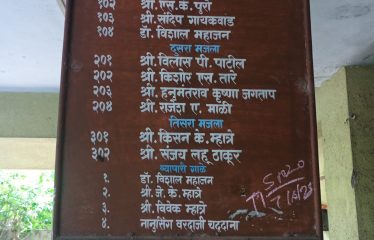 १०२ श्री.एस.के.पुरो
१०३ श्री.संदिप गायकवाड
१०४ डॉ.विशाल महाजन
दुसरा मजला
२०१ श्री.विलास पी.पाटील
२०२ श्री.किशोर एल.तारे
२०३ श्री.हनुमंतराव कृष्णा जगताप
२०४ श्री.राजेश ए.माळी
तिसरा मजला
३०१ श्री.किसन के.म्हात्रे
३०२ श्री.संजय लहू ठाकूर
व्यापारी गाळे
१. डॉ.विशाल महाजन
२. श्री.जे.के.म्हात्रे
३. श्री.विवेक म्हात्रे
४. नानुसिंग वरदाजी चददाना